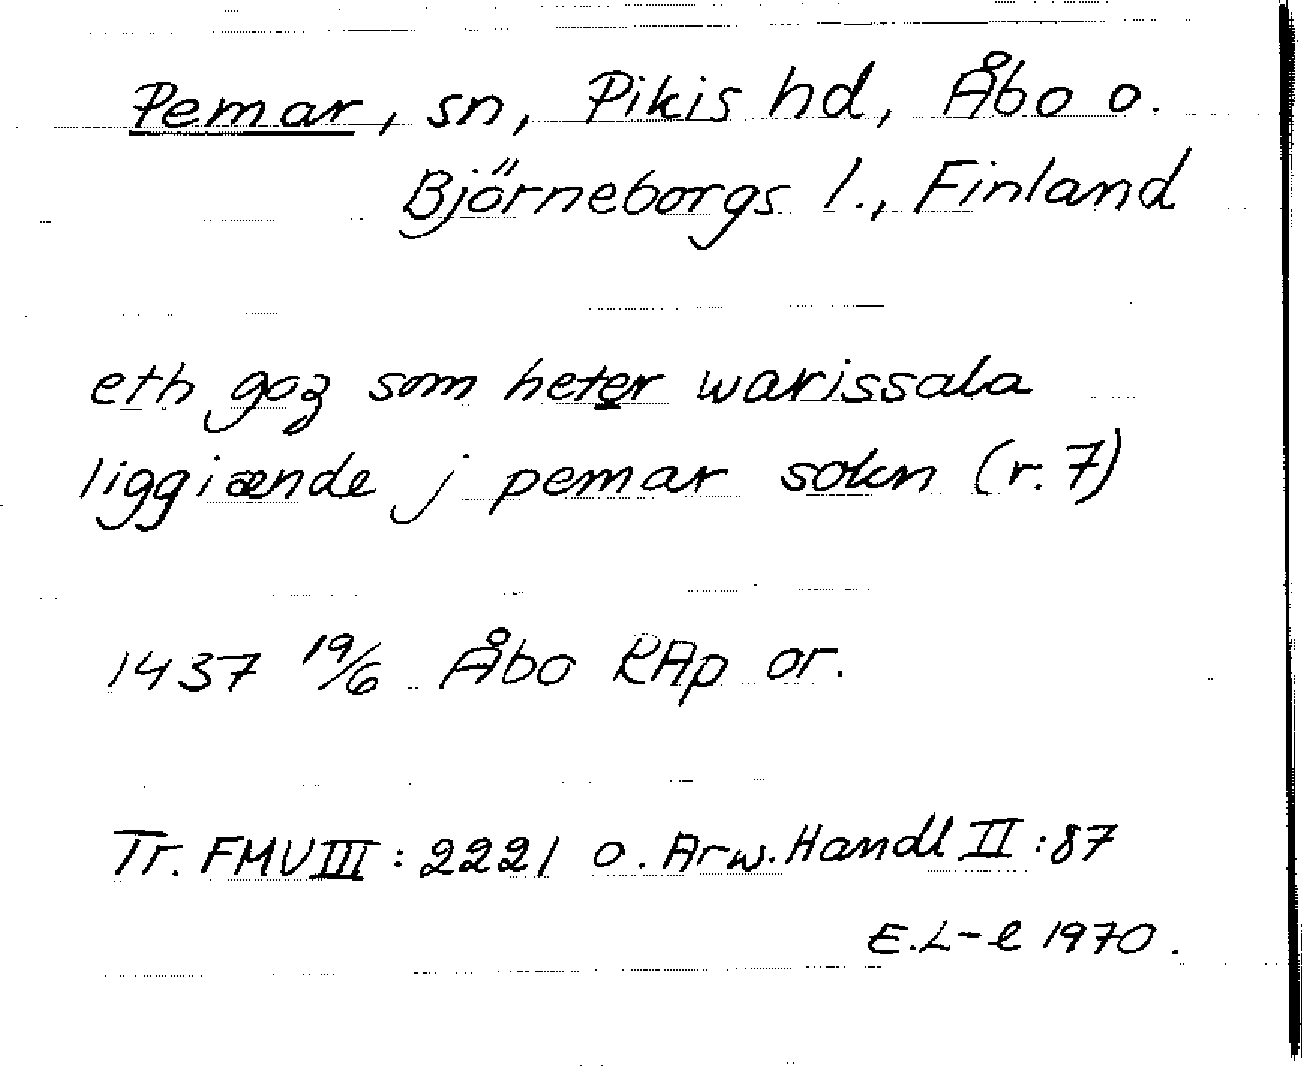 Pemar, sn, Pikis hd, Åbo o.
Björneborgs l., Finland
eth goz som heter warissala
liggiænde j pemar sokn (r. 7)
1437 19/6 Åbo RAp or.
Tr. FMU III : 2221 o. Arw. Handl II : 87
E. L-l 1970.